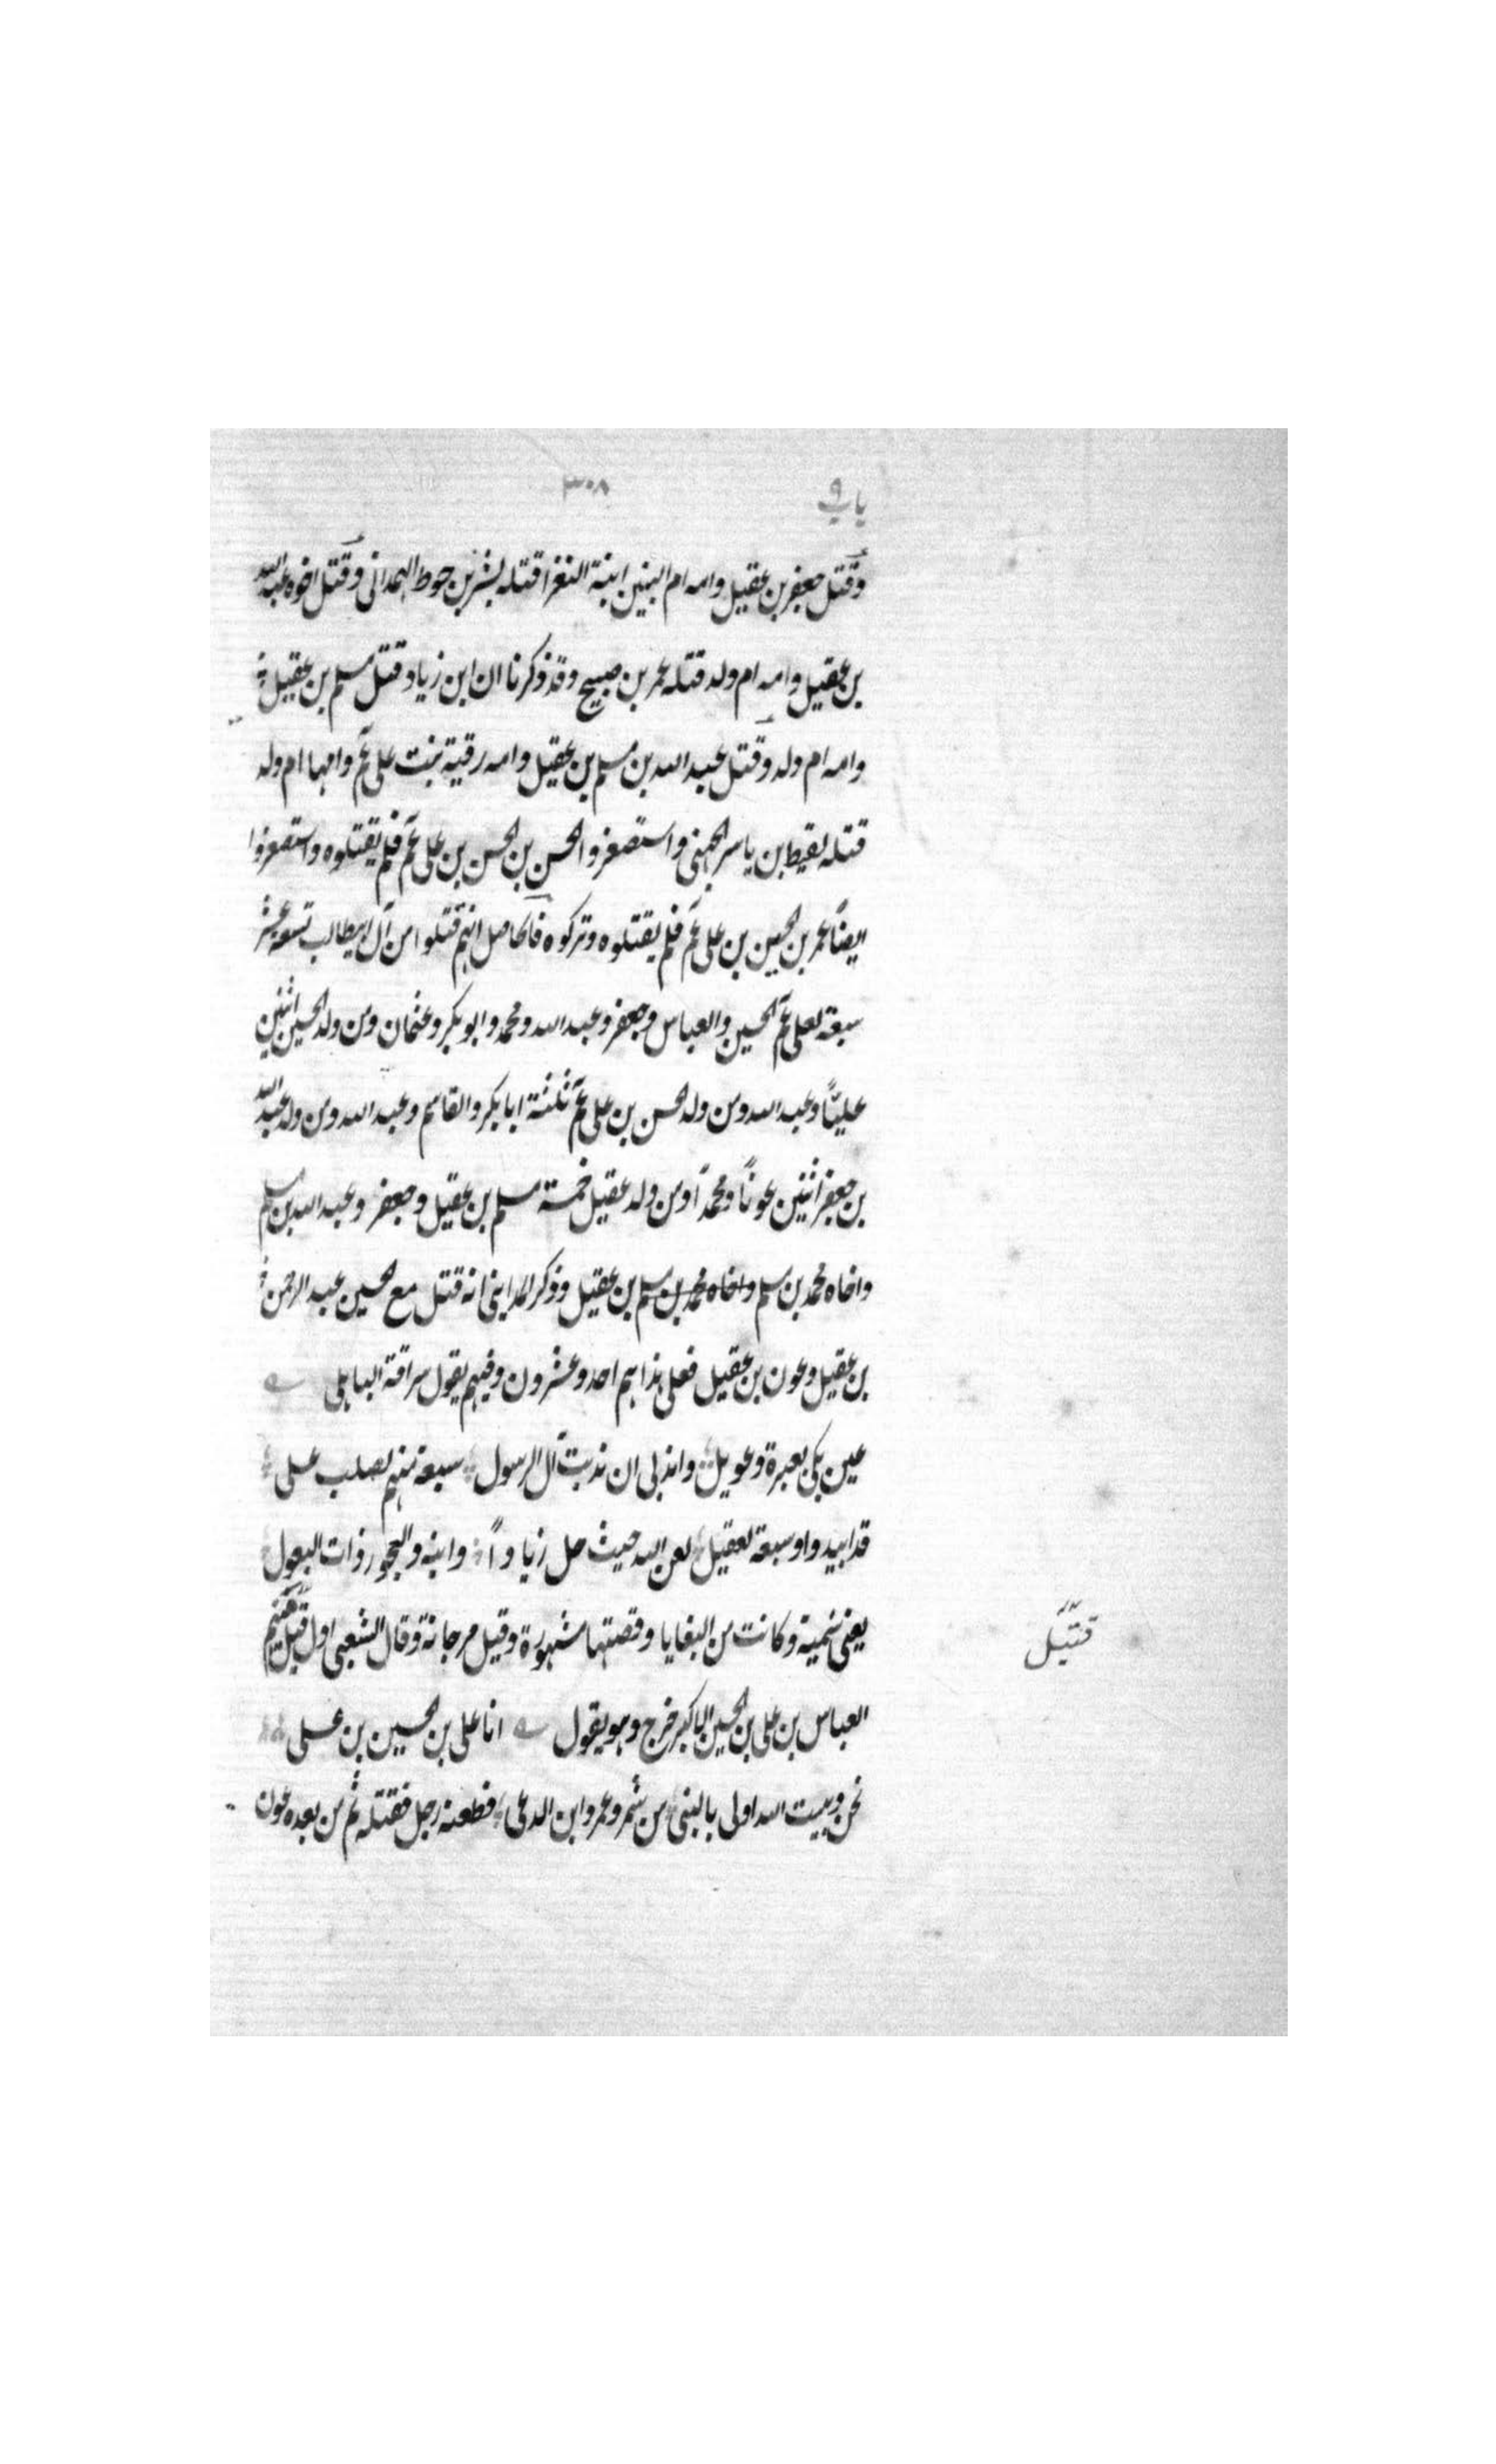 باب ٩
٣٠٨
وقتل جعفر بن عقيل وامه ام البنين ابنة النغرا قتله بشر بن حوط الهمدانی وقتل اخوه عبد الله
بن عقيل وامه ام ولد قتله عمر بن صبيح وقد ذكرنا ان ابن زياد قتل مسلم بن عقيل
وامه ام ولد وقتل عبد الله بن مسلم بن عقيل وامه رقية بنت علی عم وامها ام ولد
قتله لقيط بن ياسر الجهنی واستصغروا الحسن بن الحسن بن علی عم فلم يقتلوه واستصغروا
ايضاً عمر بن الحسين بن علی عم فلم يقتلوه وتركوه فالحاصل انهم قتلوا من آل ابيطالب تسعة عشر
سبعة لعلی عم الحسين والعباس وجعفر وعبد الله ومحمد وابو بكر وعثمان ومن ولد الحسين اثنين
علياً وعبد الله ومن ولد الحسن بن علی عم ثلثة ابا بكر والقاسم وعبد الله ومن ولد عبد الله
بن جعفر اثنين عوناً ومحمداً ومن ولد عقيل خمسة مسلم بن عقيل وجعفر وعبد الله بن مسلم
واخاه محمد بن مسلم واخاه محمد بن مسلم بن عقيل وذكر المداينی انه قتل مع الحسين عبد الرحمن
بن عقيل وعون بن عقيل فعلی هذا هم احد وعشرون وفيهم يقول سراقة الباهلی
عين بكی بعبرة وعويل واندبی ان ندبت آل الرسول سبعة منهم لصلب علی
قد ابيدوا وسبعة لعقيل لعن الله حيث حل زياداً وابنه والعجوز ذات البعول
يعنی سمية وكانت من البغايا وقصتها مشهورة وقيل مرجانة وقال الشعبی اول قتيل منهم
قتيل
العباس بن علی بن الحسين الاكبر خرج وهو يقول انا علی بن الحسين بن علی
نحن وبيت الله اولی بالنبی من شمر وعمر وابن الدعی فطعنه رجل فقتله ثم من بعده عون